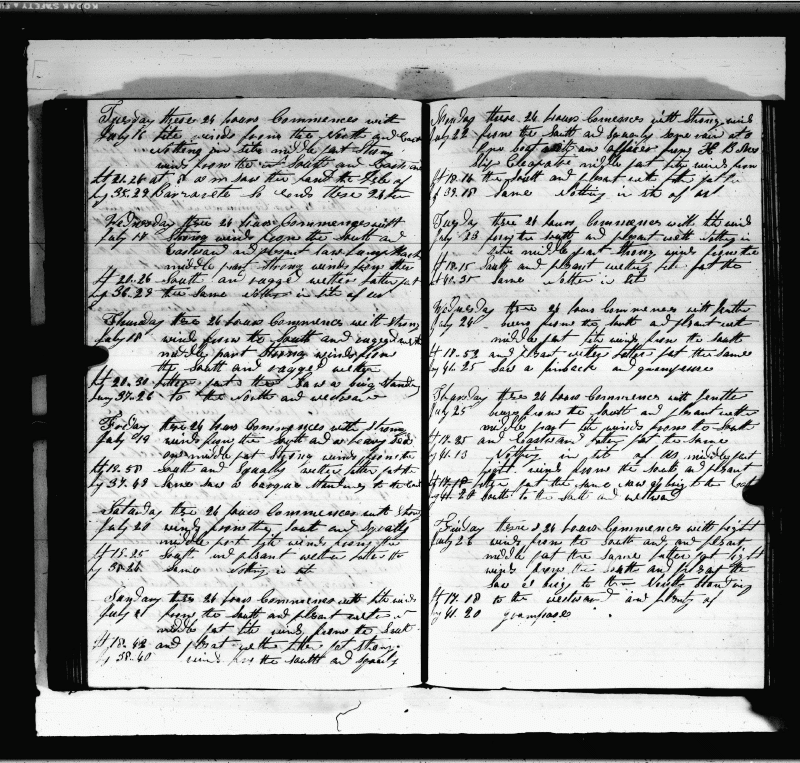 KODAK SAFETY
Tuesday these 24 hours Commences with
July 16 lite winds from the North and East
Nothing in site middle part Strong
winds from the South and East
Lt 21.26 at 5 a m saw the land the Isle of
Lg 35.29 these 24 hou
Wednesday these 24 hours Commences with
July 17 Strong winds from the South and
Eastward and plesant
middle part Strong winds from the
Lt 20.26 South and ragged wether latter part
Lg 36.29 the same nothing in site of us
Thursday these 24 hours Commences with Strong
July 18 winds from the South and ragged wether
middle part Strong winds from
the South and ragged wether
Lt 20.30 latter part the saw a brig standing
Lg 37.26 to the North and westward
Friday these 24 hours Commences with Strong
July 19 winds from the South and a heavy Sea
on middle part Strong winds from the
Lt 19.58 South and Squally wether latter part the
Lg 37.49 same saw a barque standing to the East
Saturday these 24 hours Commences with Strong
July 20 winds from the South and Squally
middle part lite winds from the
Lt 18.25 South and plesant wether latter the
Lg 38.26 same nothing in site
Sunday these 24 hours Commences with lite winds
July 21 from the South and plesant wether
middle part lite winds from the South
Lt 18.42 and plesant wether latter part strong
Lg 38.40 winds from the South and Squaly
Monday these 24 hours Comences with Strong winds
July 22 from the South and Squaly some rain at
boat with an officer from H B
Ship Cleopatra middle part lite winds from
Lt 18.16 the South and plesant with latter part the
Lg 39.18 same nothing in site of us
Tuesday these 24 hours Commences with lite winds
July 23 from the South and plesant with nothing in
site middle part strong winds from the
Lt 18.15 South and plesant wether latter part the
Lg 40.35 same nothing in site
Wednesday these 24 hours Commences with Jentle
July 24 breezes from the South and plesant weth
middle part lite winds from the South
Lt 18.52 and plesant wether latter part the same
Lg 41.25 saw a finback and grampuses
Thursday these 24 hours Commences with Jentle
July 25 breezes from the South and plesant wether
middle part lite winds from the South
Lt 17.35 and Eastward latter part the same
Lg 41.13 Nothing in site of us middle part
light winds from the South and plesant
Lt 17.18 latter part the same saw a brig to the East
Lg 41.20 South to the South and westward
Friday these 24 hours Commences with light
July 26 winds from the South and plesant
middle part the same latter part light
winds from the South and plesant the
saw a brig to the North standing
Lt 17.18 to the westward and plenty of
Lg 41.20 grampuses